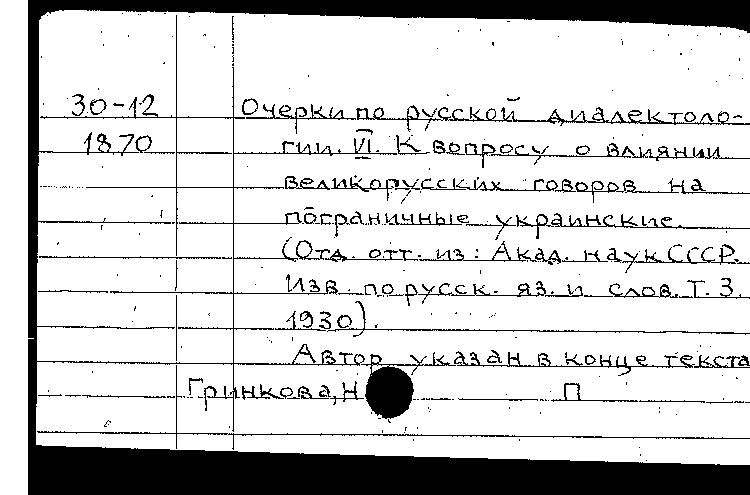 30-12 Очерки по русской диалектоло-
1870 гии. VI. К вопросу о влиянии
великорусских говоров на
пограничные украинские.
(Отд. отт. из: Акад. наук СССР.
Изв. по русск. яз. и слов. Т. 3.
1930).
Автор указан в конце текста
Гринкова, Н П